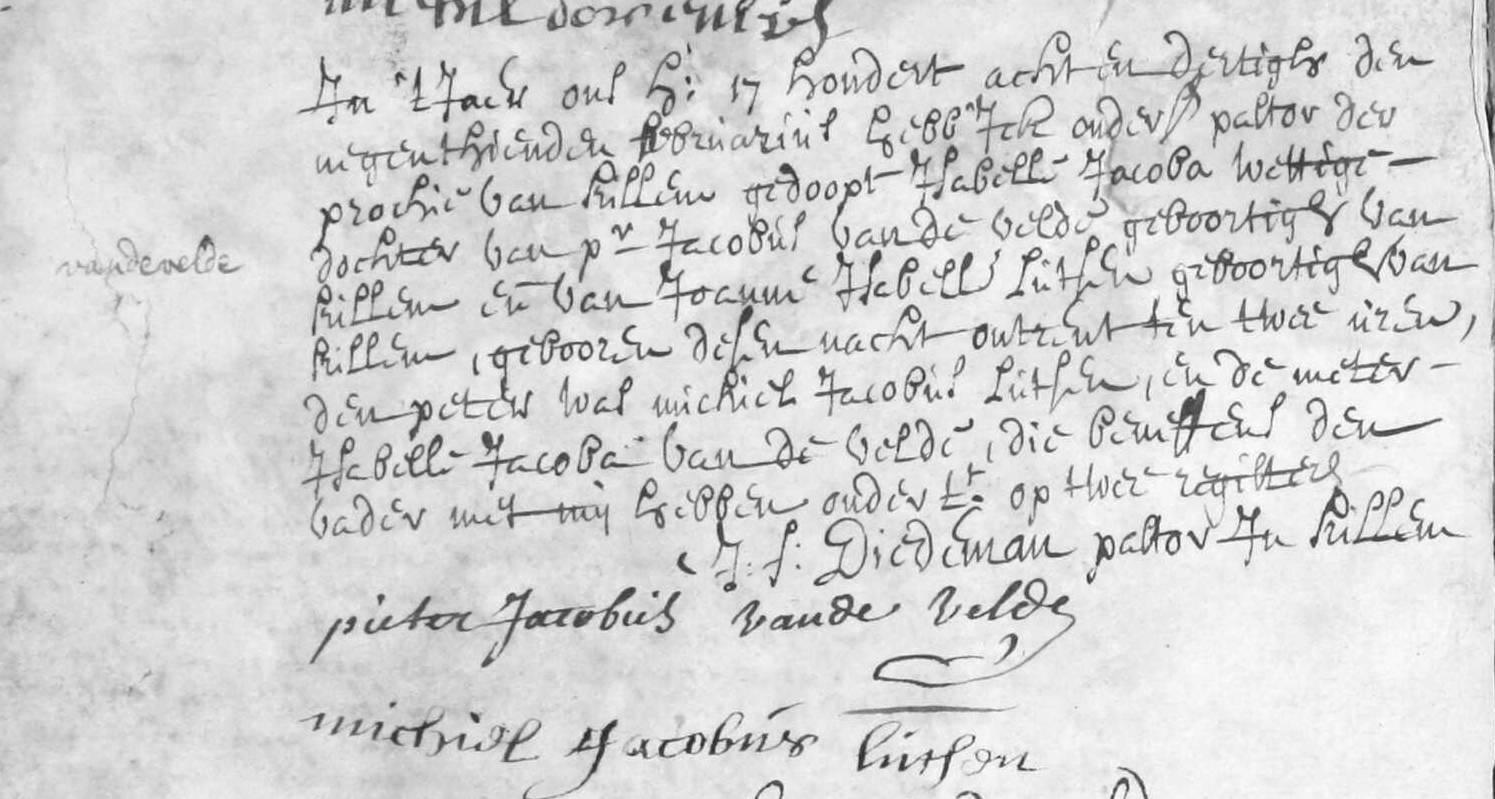 In 't Jaer ons h: 17 hondert acht en dertigh den
negenthienden februarius hebb' Ick onders pastor der
prochie van killem gedoopt Isabelle Jacoba wettige
dochter van pr Jacobus van de velde geboortigh van
vandevelde
killem en van Joanne Isabelle Luthen geboortigh van
killem, gebooren desen nacht ontrent ten twee uren,
den peter was michiel Jacobus Luthen, en de meter
Isabelle Jacoba van de velde, die beneffens den
vader met mij hebben ondert: op twee registers
J: f: Diedeman pastor In killem
pieter Jacobus vande velde
michiel Jacobus luthen